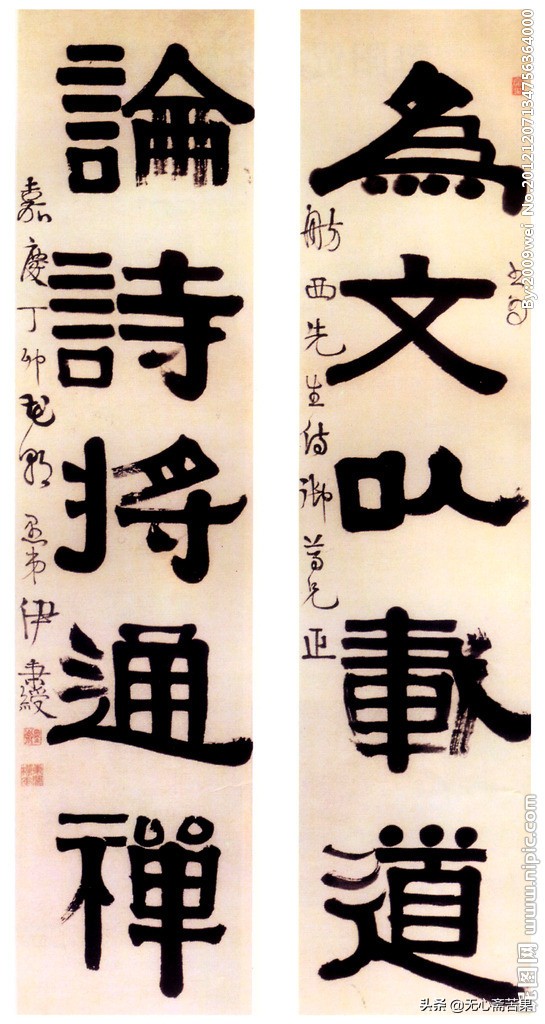 為文以載道
舫西先生侍御尊兄正
論詩將通禪
嘉慶丁卯花朝愚弟伊秉綬
By:2009wei No.20121207134756364000
昵图网 www.nipic.com
头条 @无心斋苦果